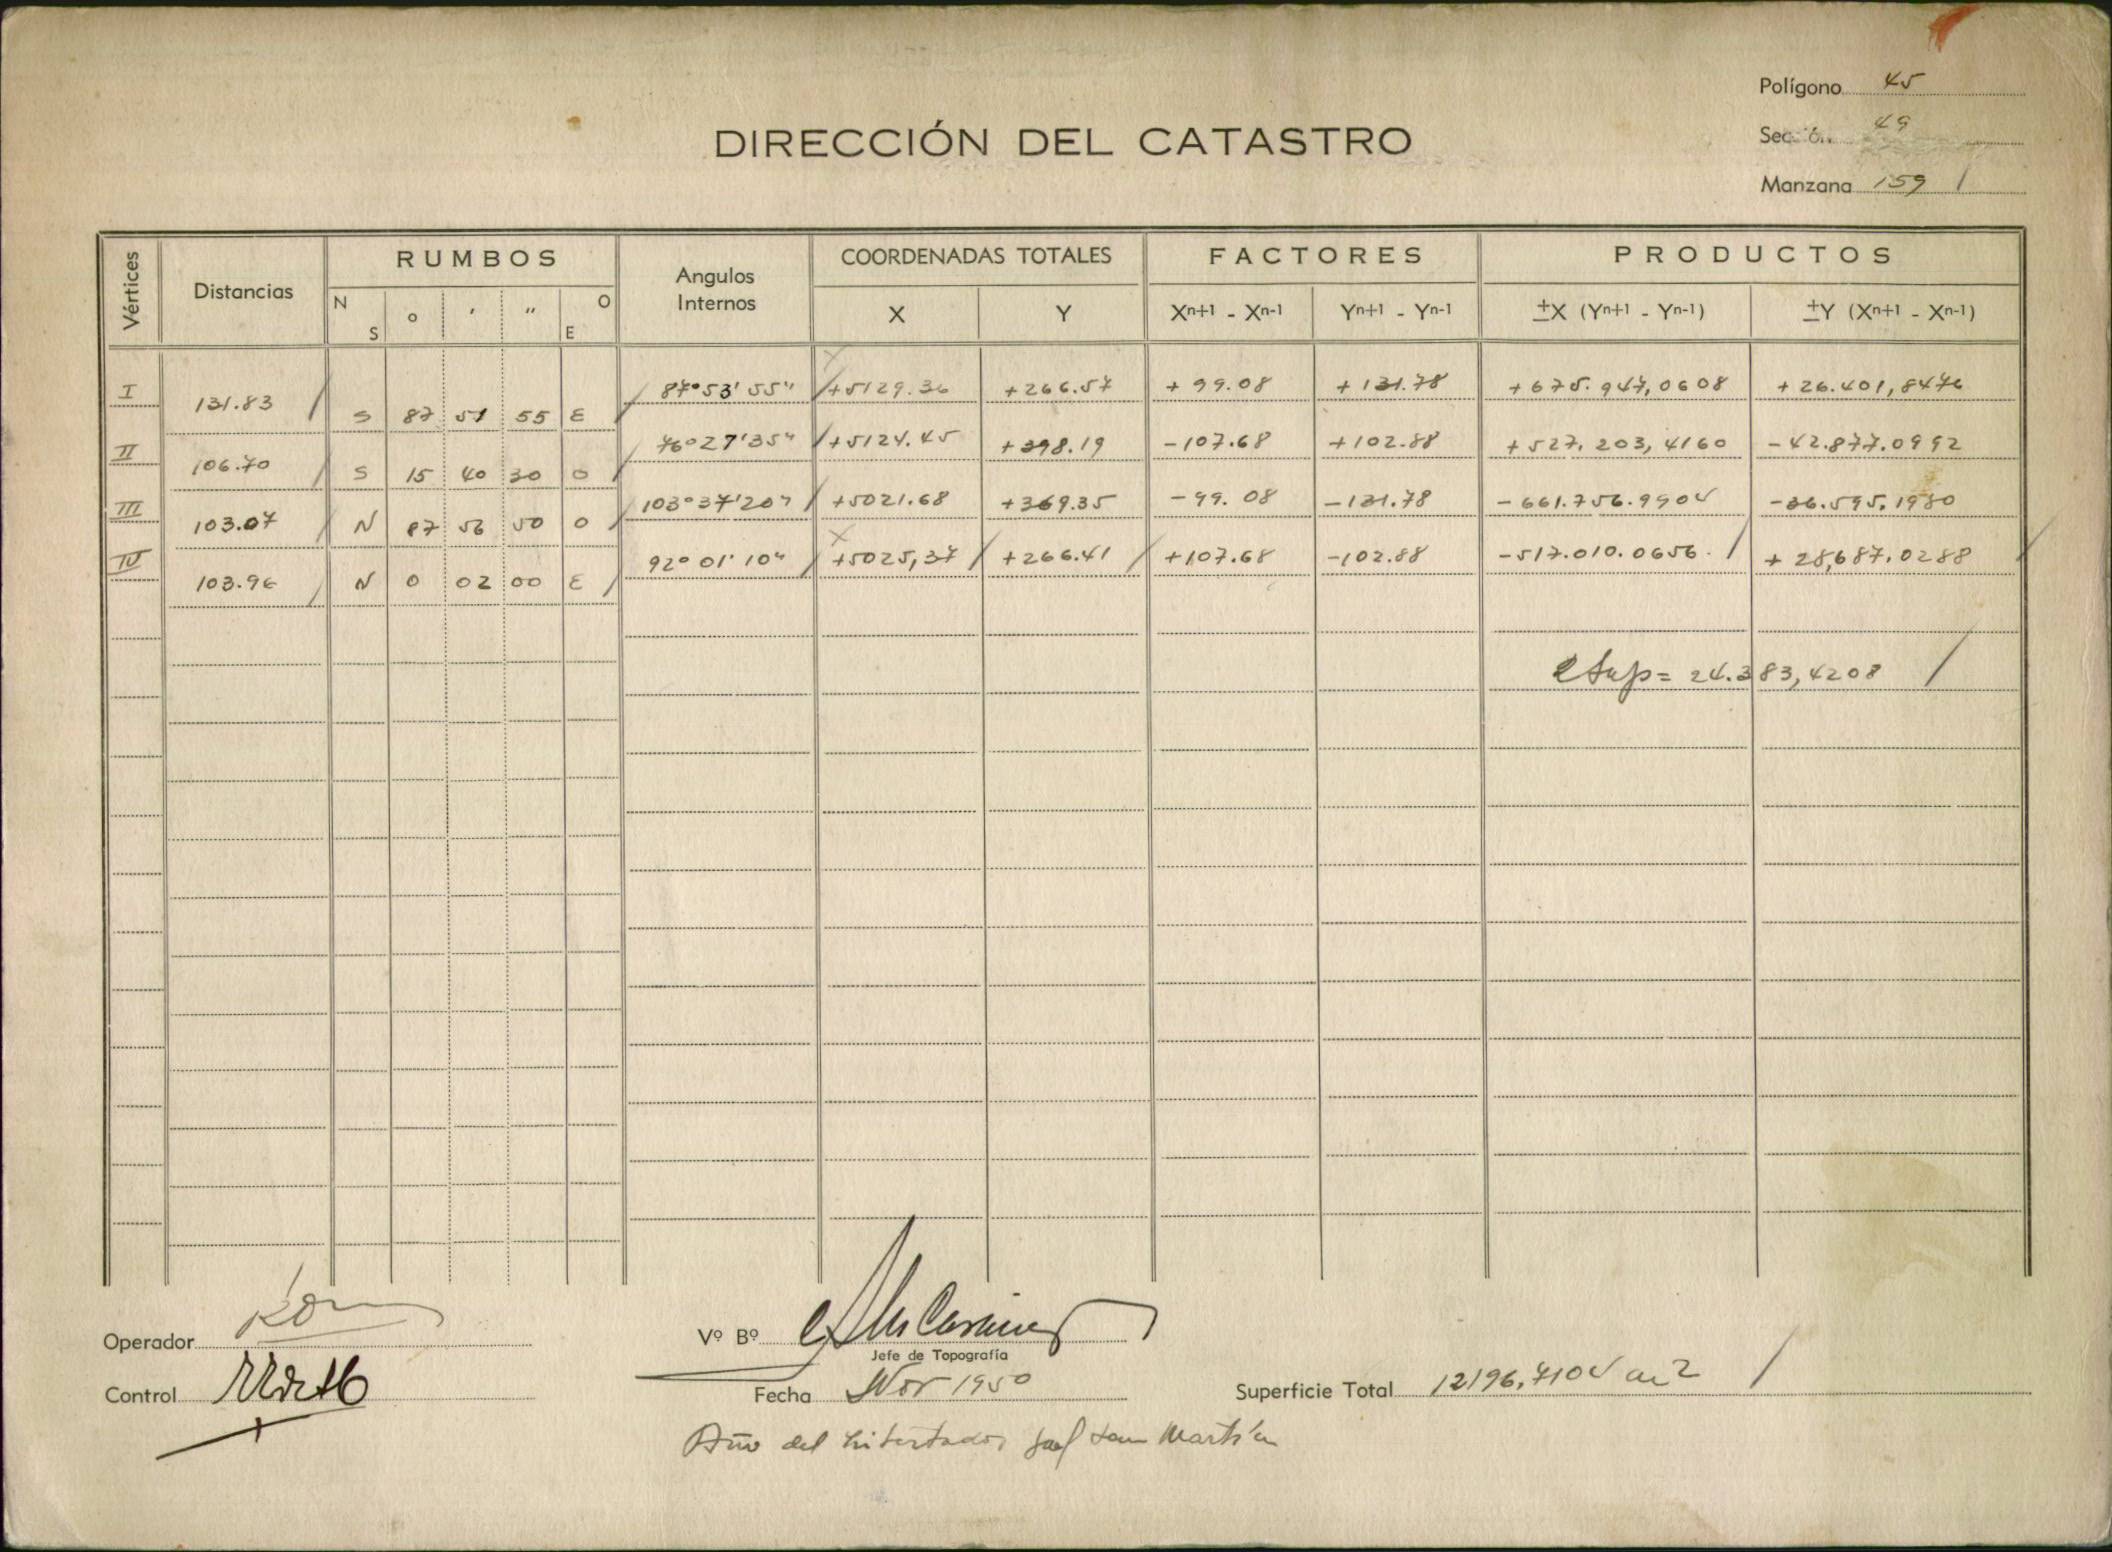 Polígono 45
DIRECCIÓN DEL CATASTRO
Sección 49
Manzana 159 /
Vértices
Distancias
RUMBOS
N S o ʹ ʺ O E
Angulos Internos
COORDENADAS TOTALES
X Y
FACTORES
Xn+1 - Xn-1 Yn+1 - Yn-1
PRODUCTOS
±X (Yn+1 - Yn-1) ±Y (Xn+1 - Xn-1)
I 131.83 / S 87 51 55 E / 87° 53' 55" / +5129.36 +266.57 +99.08 +131.78 +675.947,0608 +26.401,8476
II 106.70 / S 15 40 30 O / 76° 27' 35" / +5124.45 +398.19 -107.68 +102.88 +527.203,4160 -42.877.0992
III 103.07 / N 87 56 50 O / 103° 37' 20" / +5021.68 +369.35 -99.08 -131.78 -661.756.9904 -36.595,1980
IV 103.96 / N 0 02 00 E / 92° 01' 10" / +5025,37 / +266.41 / +107.68 -102.88 -517.010.0656. / +28,687.0288 /
2 Sup = 24.383,4208 /
Operador
Vº Bº
Jefe de Topografía
Control
Fecha Nov 1950
Superficie Total 12196,7104 m2 /
Año del Libertador Gral San Martín